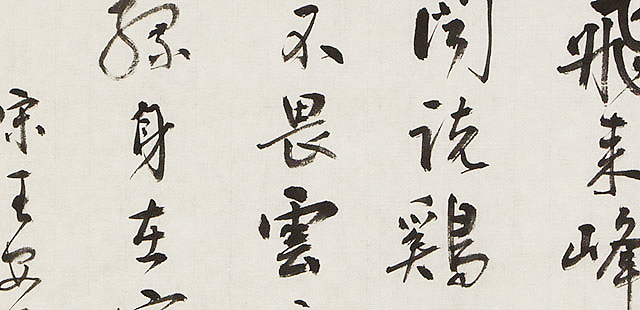 飛来峰
聞説鷄
不畏雲
緣身在
宋王安